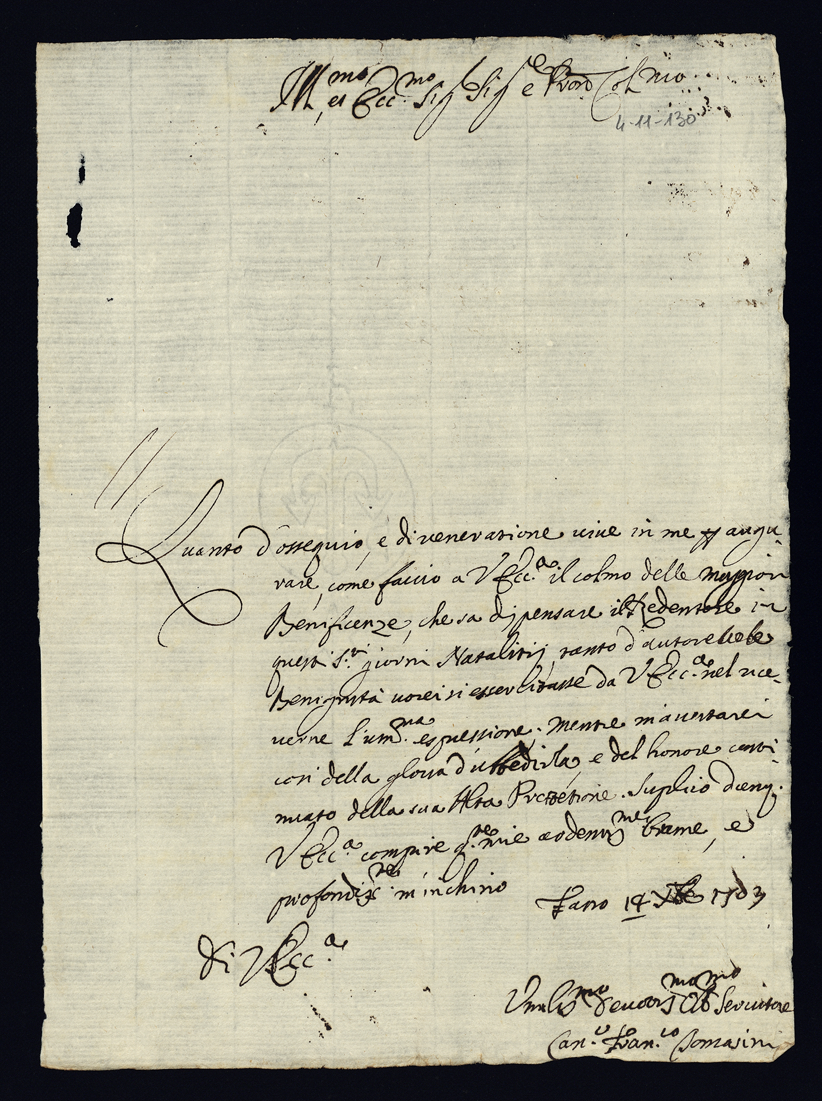 Ill.mo et Ecc.mo Sig.r Sig.r e Pron Col.mo
4-11-130
Quanto d'ossequio, e di veneratione vive in me p augu-
rare, come faccio a V Ecc.a il colmo delle maggiori
Beneficenze, che sa dispensare il Redentore in
questi S.ti giorni Natalitij, tanto d'autorevole
Benignità vorei si essercitasse da V Ecc.a nel rice-
verne l'um.ma espressione. Mentre m'avertarei
così della gloria d'ubbedirla, e del honore conti-
nuato della sua Alta Protetione. Suplico
V Ecc.a compire q.te mie ardentis.me brame, e
profondis.te m'inchino
Fano 14 Xbre 1703
Di V Ecc.a
Umilis.mo Devotis.mo Obl.mo Servitore
Can.co Fran.co Tomasini